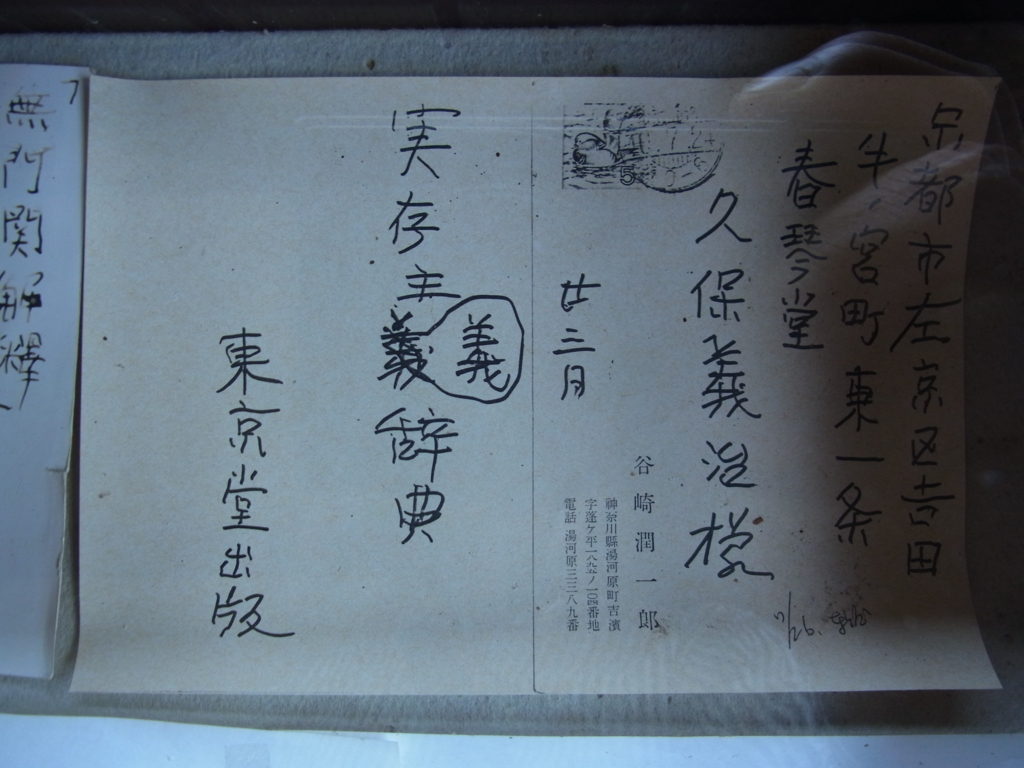 京都市左京区吉田
牛ノ宮町東一条
春琴堂
久保義治様
廿三月
谷崎潤一郎
神奈川縣湯河原町吉濱
字蓬ヶ平一八九五ノ一〇四番地
電話 湯河原三三八九番
5
実存主義辞典
義
東京堂出版
無門関解釋